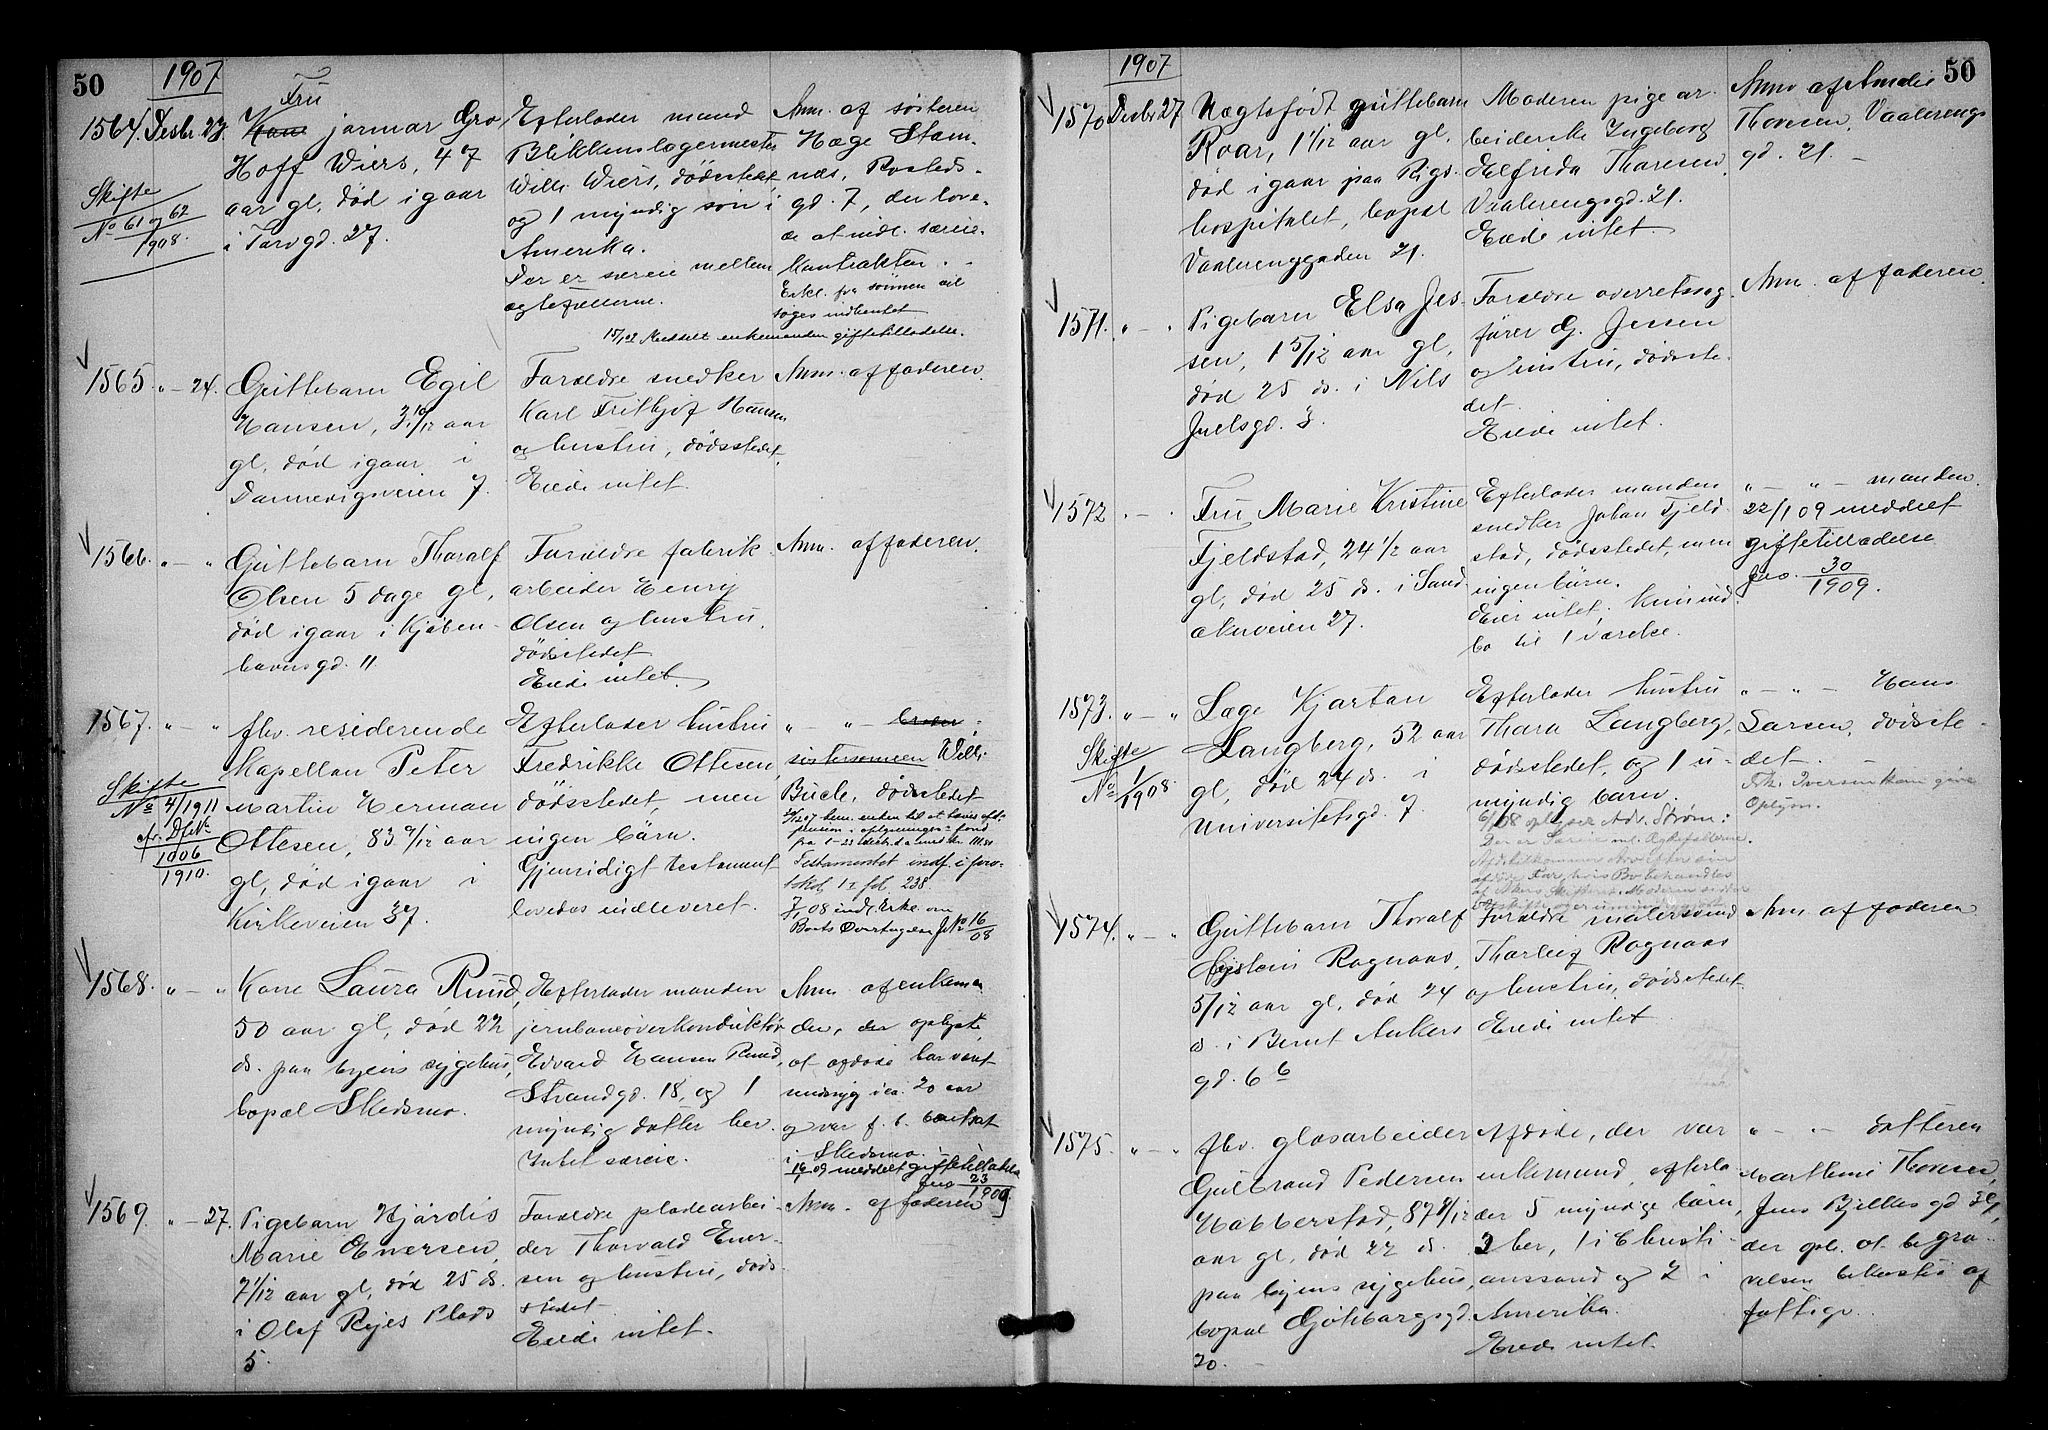 50
1907
1564. Desbr 23.
Fru
Kone jarmar Gro
Hoff Wiers, 47
aar gl, død igaar
i Torvgd. 27.
Skifte
No 61 og 62
1908.
Efterlader mand
Blikkenslagermester
Wilh. Wiers, dødsstedet
og 1 myndig søn i
Amerika.
Der er særeie mellem
ægtefællerne.
Anm. af søsteren
Hæge Stam-
næs, Rosteds-
gd. 7, der love-
de at indl. særeie-
kontrakten. -
Erkl. fra sønnen vil
søges indhentet
15/1 08 Meddelt enkemanden giftetilladelse.
1565 " - 24.
Guttebarn Egil
Hansen, 3 10/12 aar
gl, død igaar i
Dannevigsveien 7.
Forældre snedker
Karl Frithjof Hansen
og hustru, dødsstedet.
Eiede intet.
Anm. af faderen.
1566. " - "
Guttebarn Thoralf
Olsen 5 dage gl,
død igaar i Kjøben-
havnsgd. 11
Forældre fabrik-
arbeider Henry
Olsen og hustru,
dødsstedet
Eiede intet.
Anm. af faderen.
1567. " - "
fhv. residerende
Kapellan Peter
Martin Herman
Ottesen, 83 9/12 aar
gl, død igaar i
Kirkeveien 37.
Skifte
No 4/1911
1006
1910.
Efterlader hustru
Fredrikke Ottesen,
dødsstedet, men
ingen børn.
Gjensidigt testament
lovedes indleveret.
" " - broder
søstersønnen Wilh.
Bucle, dødsstedet
Testamentet indf. i pro-
tokol 12 fol. 238.
7/1 08 indl. Erkl. om
Boets Overtagelse JNo 16/08
1568. " - "
Kone Laura Ruud,
50 aar gl, død 22
ds. paa byens sygehus,
bopæl Skedsmo.
Efterlader manden
jernbaneoverkonduktør
Edvard Hansen Ruud,
Strandgd. 18, og 1
myndig datter her.
Intet særeie.
Anm. af enkeman
den, der oplyste,
at afdøde har været
sindssyg i ca. 20 aar
og var f. t. bortsat
i Skedsmo. -
16/1 09 meddelt giftetilladelse
Jno 23/1909
1569. " - 27.
Pigebarn Hjørdis
Marie Enersen,
7/12 aar gl, død 25 ds.
i Olaf Ryes Plads
5.
Forældre pladearbei-
der Thorvald Ener-
sen og hustru, døds-
stedet.
Eiede intet.
Anm. af faderen
50
1907
1570 Desbr 27
Uægtefødt guttebarn
Roar, 1 1/12 aar gl,
død igaar paa Rigs-
hospitalet, bopæl
Vaalerenggaden 21.
Moderen pige ar-
beiderske Ingeborg
Elfrida Thoresen,
Vaalerengsgd. 21.
Eiede intet.
Anm af Amalie
Thoresen, Vaalerengs
gd. 21. -
1571. " - "
Pigebarn Elsa Jes-
sen, 1 5/12 aar gl,
død 25 ds. i Nils
Juelsgd. 3.
Forældre overretssag-
fører G. Jessen
og hustru, dødsste-
det.
Eiede intet.
Anm. af faderen.
1572 " - "
Fru Marie Kristine
Fjeldstad, 24 1/2 aar
gl, død 25 ds. i Sand-
akerveien 27.
Efterlader manden
snedker Johan Fjeld-
stad, dødsstedet, men
ingen børn.
Eier intet. Kun ind-
bo til 1 værelse.
" - " - manden.
22/1 09 meddelt
giftetilladelse
Jno. 30/1909.
1573. " - "
Skifte
No 1/1908.
Lage Kjartan
Langberg, 52 aar
gl, død 24 ds. i
Universitetsgd. 7
Efterlader hustru
Thora Langberg,
dødsstedet, og 1 u-
myndig barn.
6/1 08 oplyser Adv. Strøm:
Der er Særeie ml. Ægtefællerne.
" - " - Hans
Larsen, dødsste-
det. -
Frk. Iversen kan give
Oplysn.
1574. " - "
Guttebarn Thoralf
Øystein Rognaas,
5/12 aar gl, død 24
ds. i Bernt Ankers
gd. 6 b
Forældre malersvend
Thorleif Rognaas
og hustru, dødsstedet.
Eiede intet
Anm. af faderen
1575. " - "
fhv. glasarbeider
Gulbrand Pedersen
Habberstad, 87 8/12
aar gl, død 22 ds.
paa byens sygehus,
bopæl Göteborgsgd.
20.
Afdøde, der var
enkemand, efterla-
der 5 myndige børn,
2 her, 1 i Christi-
anssand og 2 i
Amerika.
Eiede intet.
" - " - datteren
Marthine Thoresen,
Jens Bjelkes gd
der opl. at begra-
velsen bekostes af
fattigv.